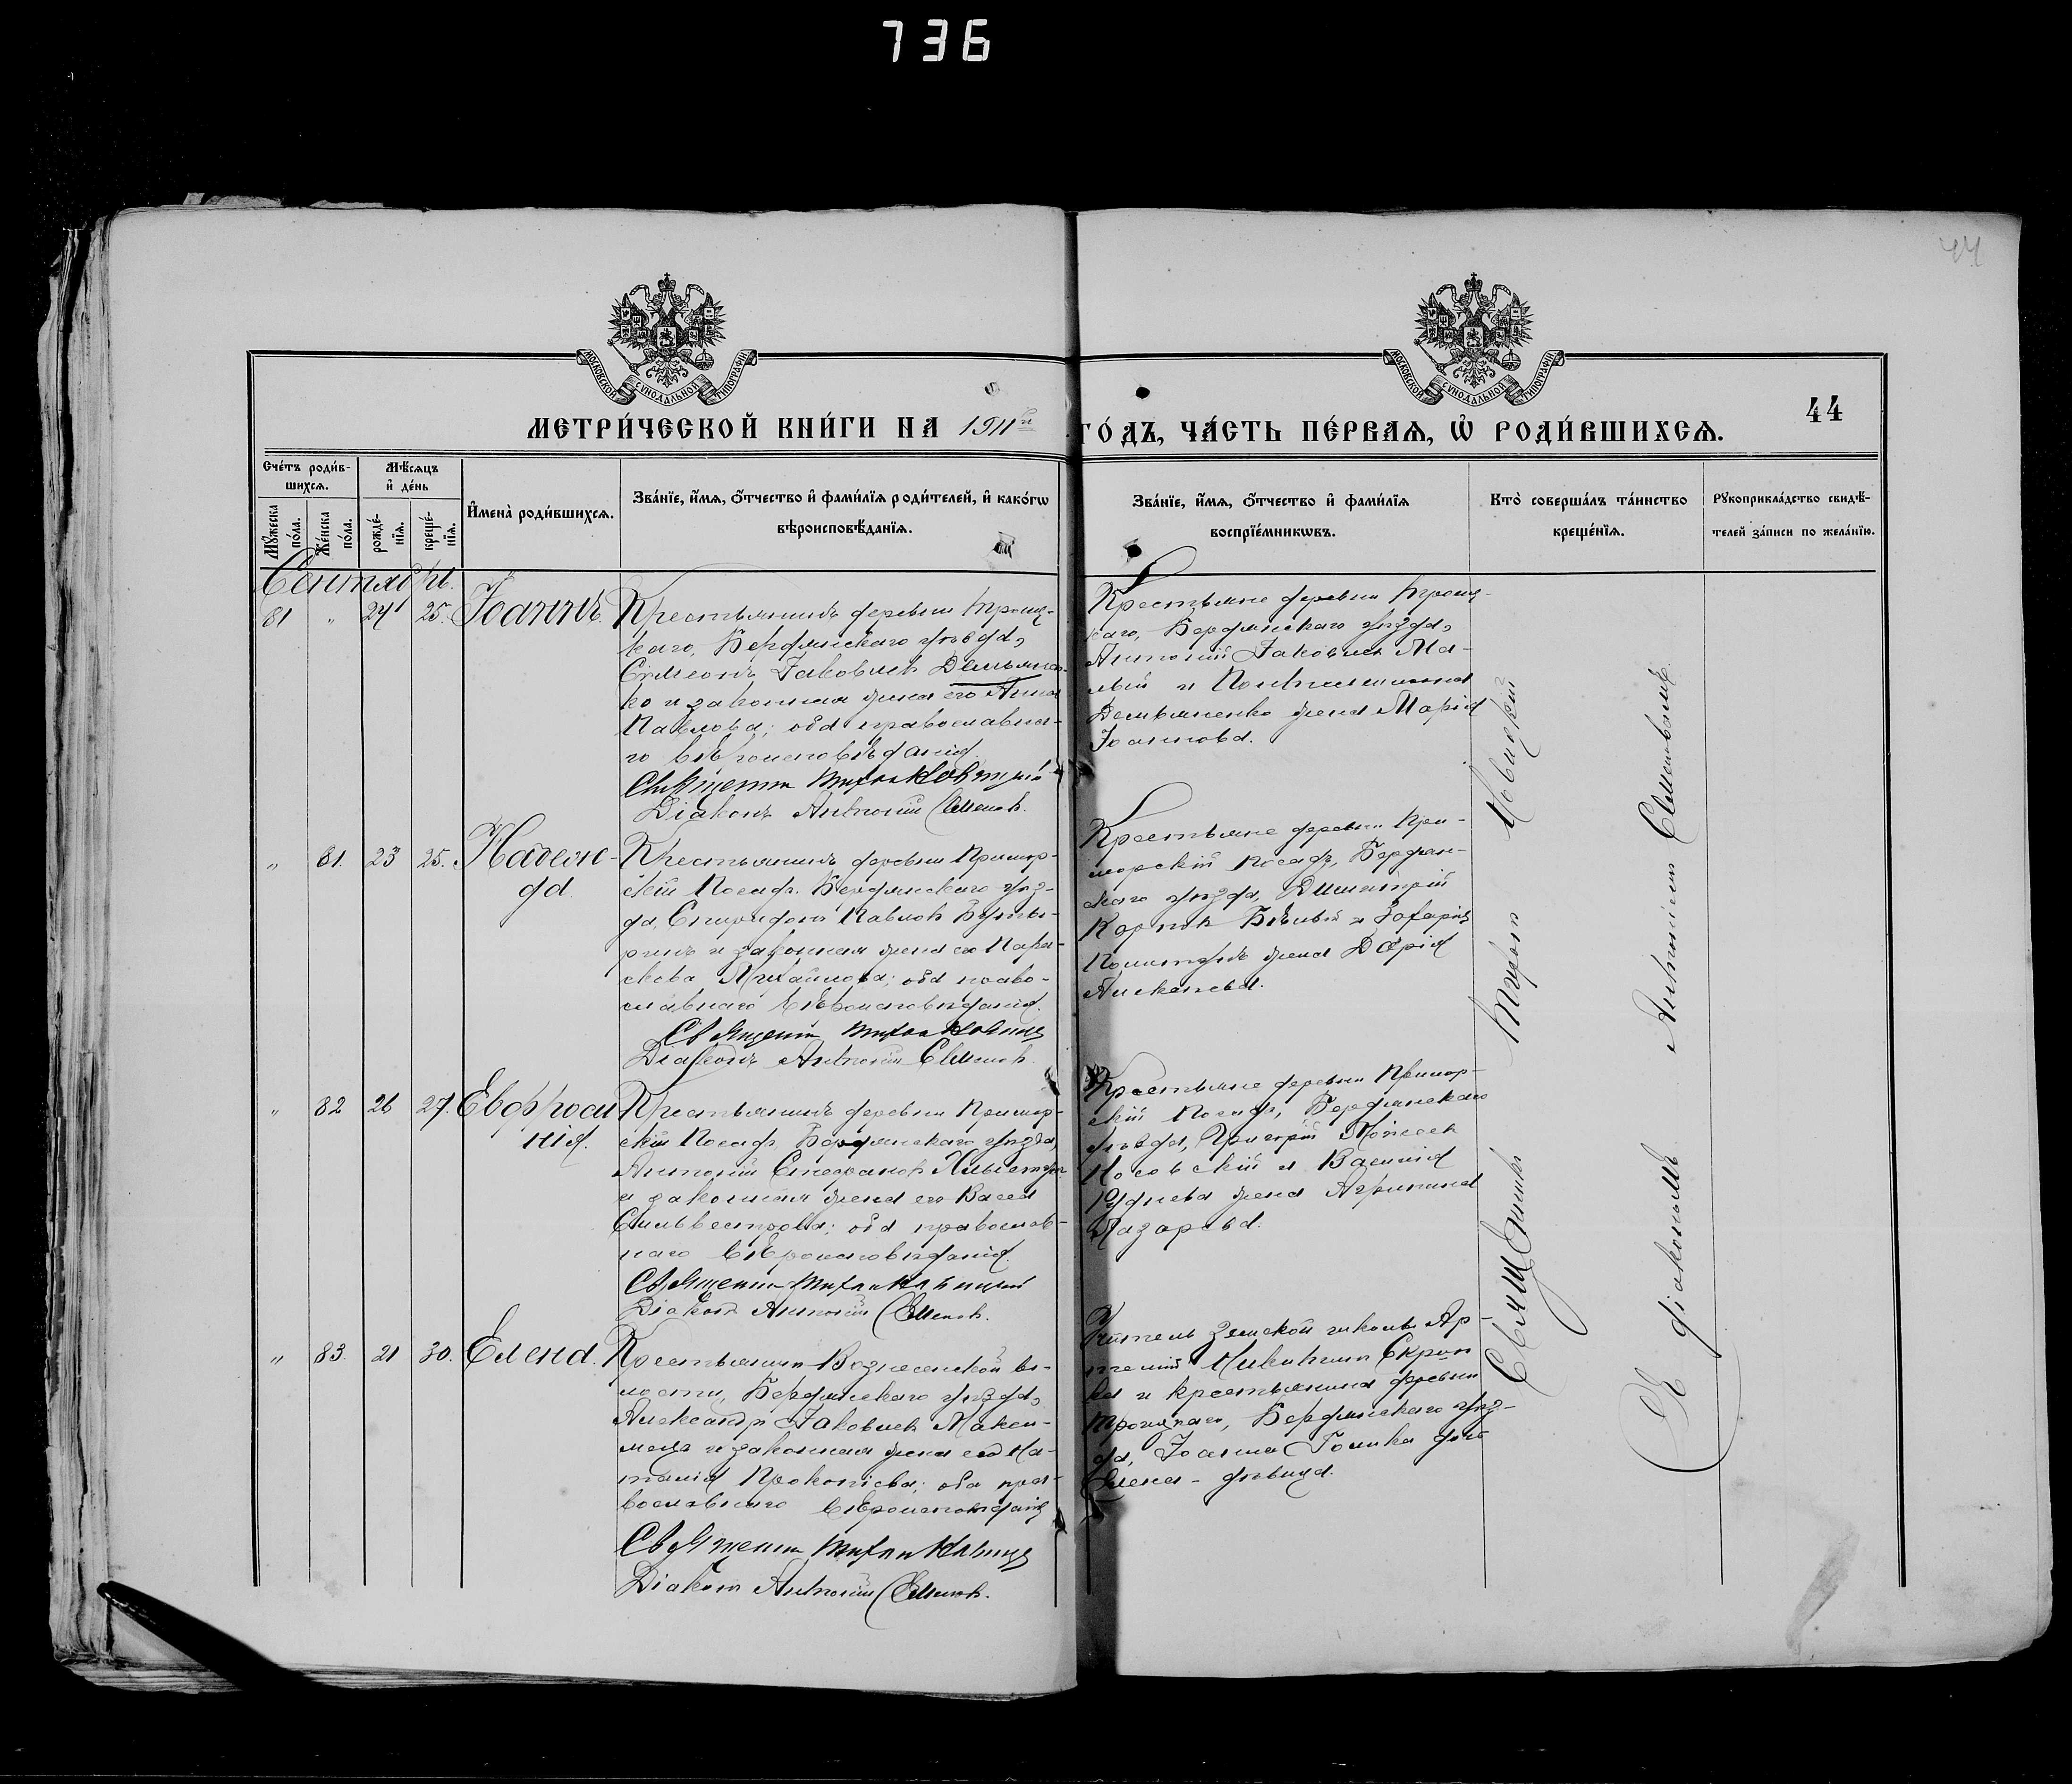 736
44
МОСКОВСКОЙ СѴНОДАЛЬНОЙ ТИПОГРАФІИ
МОСКОВСКОЙ СѴНОДАЛЬНОЙ ТИПОГРАФІИ
44
МЕТРИ́ЧЕСКОЙ КНИ́ГИ НА 1911й ГО́ДЪ, ЧА́СТЬ ПЕ́РВАѦ, Ѡ РОДИ́ВШИХСѦ.
Сче́тъ роди́в-
шихсѧ.
Мѣ́сѧцъ
и҆ де́нь
Мꙋ́жеска по́ла.
Же́нска по́ла.
рожде́-
нїѧ.
креще́-
нїѧ.
И҆мена̀ роди́вшихсѧ.
Зва́нїе, и҆́мѧ, ѻ҆́тчество и҆ фами́лїѧ роди́телей, и҆ како́гѡ
вѣроисповѣ́данїѧ.
Зва́нїе, и҆́мѧ, ѻ҆́тчество и҆ фами́лїѧ
воспрїе́мникѡвъ.
Кто̀ соверша́лъ та́инство
креще́нїѧ.
Рꙋкоприкла́дство свидѣ́-
телей за́писи по жела́нїю.
Сентябрь.
81 " 24 25. Іоаннъ.
Крестьянинъ деревни Троиц-
каго, Бердянскаго уѣзда,
Сѵмеонъ Іаковлевъ Демьянен-
ко и законная жена его Анна
Павлова; оба православна-
го вѣроисповѣданія.
Священник Тихон Новицкій
Діаконъ Антоній Семенов.
Крестьяне деревни Троиц-
каго, Бердянскаго уѣзда,
Антоній Іаковлев Ма-
лый и
Демьяненко жена Марія
Іоаннова.
" 81. 23 25. Надеж-
да.
Крестьянинъ деревни Примор-
скій Посадъ Бердянскаго уѣз-
да, Спиридонъ Павлов
и законная жена его Пара-
скева Михайлова; оба право-
славнаго вѣроисповѣданія.
Священник Тихон Новицкій
Діаконъ Антоній Семенов.
Крестьяне деревни При-
морскій Посадъ, Бердян-
скаго уѣзда, Димитрій
Бѣлый и Захарія
жена Дарія
Алексѣева.
" 82 26 27. Евфроси-
нія.
Крестьянинъ деревни Примор-
скій Посадъ Бердянскаго уѣзда,
Антоній Стефанов
и законная жена его Васса
Сильвестрова; оба православ-
наго вѣроисповѣданія.
Священник Тихон Новицкий
Діаконъ Антоній Семенов.
Крестьяне деревни Примор-
скій Посадъ, Бердянскаго
уѣзда, Григорій Моисеев
Носовскій и Василія
Руднева жена Агрипина
Лазарева.
" 83. 21 30. Елена.
Крестьянин Вознесенской во-
лости, Бердянскаго уѣзда,
Александр Іаковлев Макси-
мец и законная жена его На-
талія Прокопіева; оба пра-
вославнаго вѣроисповѣданія
Священник Тихон Новицкій
Діаконъ Антоній Семенов.
Учитель земской школы Ар-
темій
и крестьянина деревни
Троицкаго, Бердянскаго уѣз-
да, Іоанна Голика дочь
Елена - дѣвица.
Священникъ Тихон Новицкій
С діакономъ Антоніем Семеновымъ.